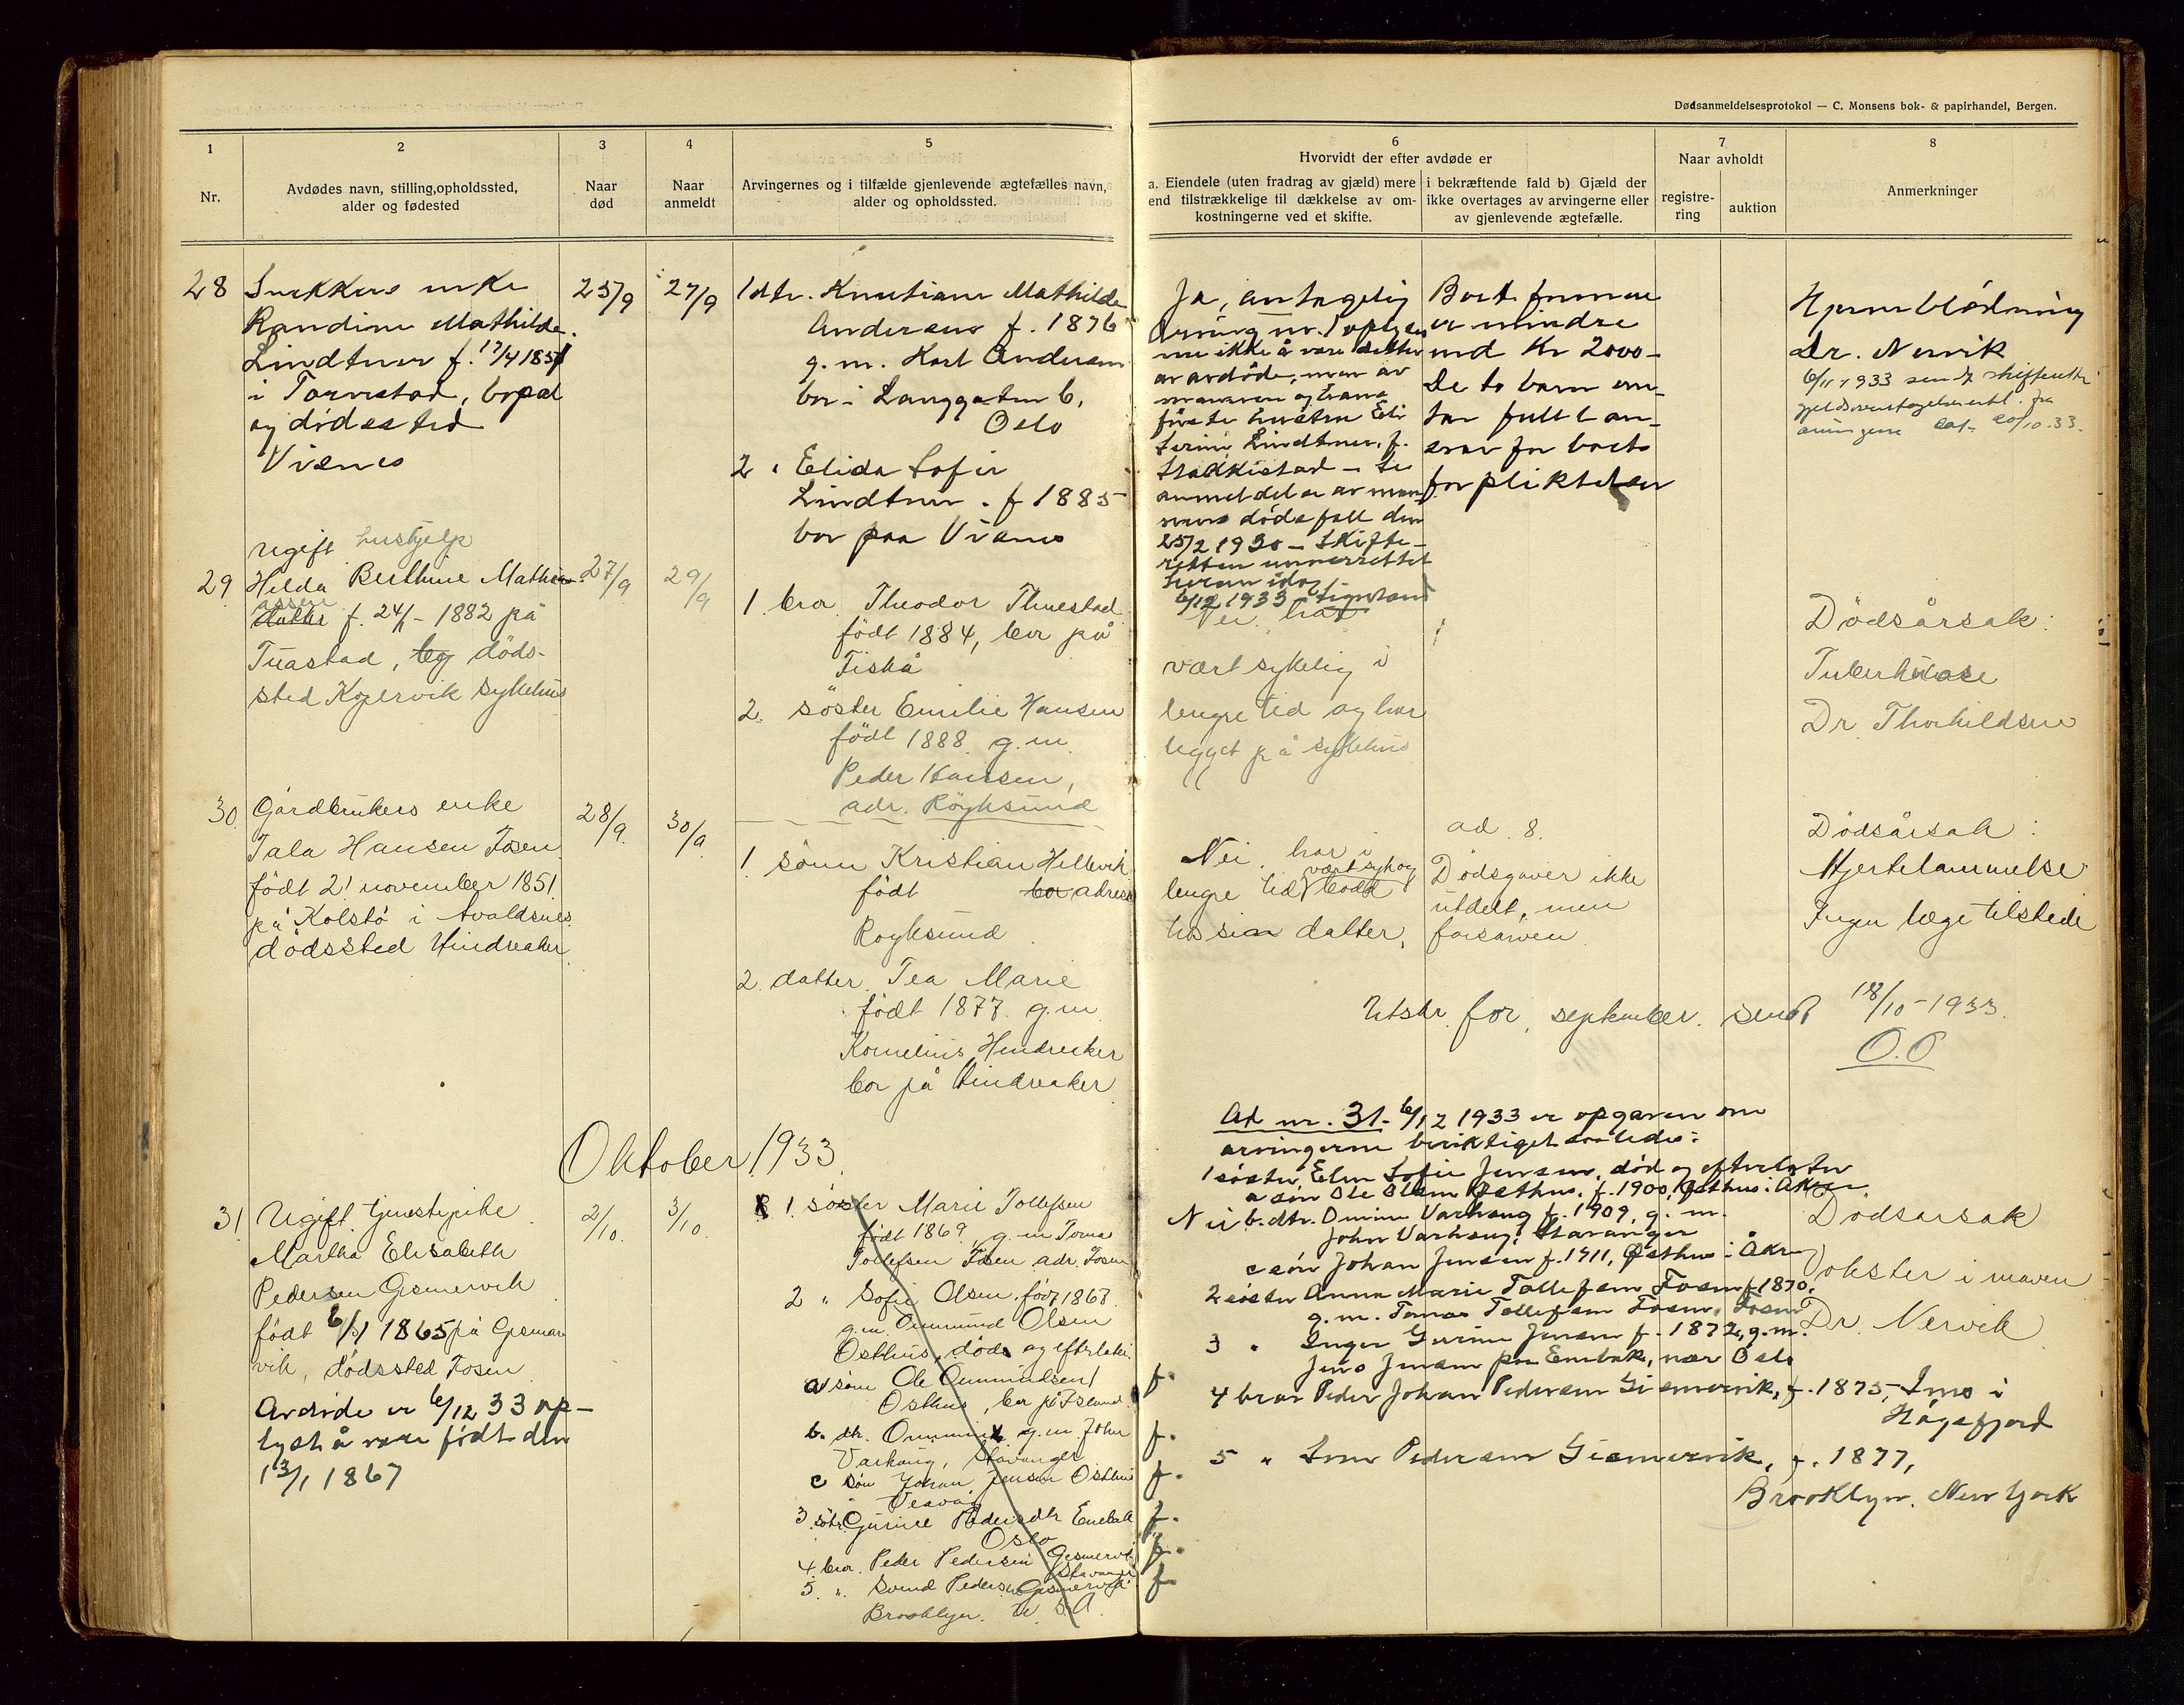 Dødsanmeldelsesprotokol — C. Monsens bok- & papirhandel, Bergen.
1
Nr.
2
Avdødes navn, stilling, opholdssted,
alder og fødested
3
Naar
død
4
Naar
anmeldt
5
Arvingernes og i tilfælde gjenlevende ægtefælles navn,
alder og opholdssted.
6
Hvorvidt der efter avdøde er
a. Eiendele (uten fradrag av gjæld) mere
end tilstrækkelige til dækkelse av om-
kostningerne ved et skifte.
i bekræftende fald b) Gjæld der
ikke overtages av arvingerne eller
av gjenlevende ægtefælle.
7
Naar avholdt
registre-
ring
auktion
8
Anmerkninger
28
Snekkers enke
Randine Mathilde
Lindtner f. 17/4 1851
i Tornestad, bopæl
og dødssted
Visnes
25/9
27/9
1 dtr. Knutiane Mathilde
Andersen f. 1876
g. m. Karl Andersen
bor i Langgaten 6,
Oslo
2 " Elida Sofie
Lindtner. f 1885
bor paa Visnes
Ja, antagelig
Arving nr. 1 oplyses
ikke å være datter
av avdøde, men av
mannen og hans
første hustru
Lindtner, f.
anmeldelse av man-
nens dødsfall den
25/2 1930 - Skifte-
retten underrettet
herom idag
6/12 1933
Boets formue
er mindre
end Kr 2000-
De to barn
tar fullt an-
svar for boets
forpliktelser
Hjerneblødning
Dr. Nervik
6/11 1933 sendt skifteretten
fra
arvingene dat. 20/10.33.
29
Ugift hushjelp
Helda Berthine Mathi-
assen
datter f. 24/1 - 1882 på
Tuastad, bg døds-
sted Kopervik sykehus
27/9
29/9
1. bror Theodor Thuestad
født 1884, bor på
Fiskå
2. søster Emilie Hansen
født 1888 g.m.
Peder Hansen,
adr. Røyksund
Nei. har
vært sykelig i
lengre tid og har
ligget på sykehus
Dødsårsak:
Tuberkulose
Dr. Thorkildsen
30.
Gårdbrukers enke
Tala Hansen Fosen
født 21 november 1851
på Kolstø i Avaldsnes
dødssted Hindraker
28/9.
30/9.
1. sønn Kristian Hellevik
født bor adresse
Røyksund
2. datter Tea Marie
født 1877 g.m.
Kornelius Hendreaker
bor på Hindreaker
Nei. har i
vært syk og
lengre tid bodd
hos sin datter.
ad. 8.
Dødsgaver ikke
utdelt, men
forsarven
Dødsårsak:
Hjertelammelse
Ingen læge tilstede
Utskr. for september sendt 18/10-1933.
O.O
Oktober 1933
31
Ugift tjenestepike
Martha Elisabeth
Pedersen Gismervik
født 6/1 1865 på Gismar
vik, dødssted Fosen
Avdøde er 6/12 33 op-
lyst å være født den
13/1 1867
2/10.
3/10.
1. søster Marie Tollefsen
født 1869, g.m Toma
Tollefsen Fosen adr. Fosen
2 " Sofie Olsen født 1868
g.m. Ommund Olsen
Østhus, død og efterlater
a søn Ole Ommundsen
Østhus, bor på
b. dtr. g.m. John
Varhaug, Stavanger
c søn Johan Jensen Østhus
i Veavåg
3. søster Gurine Pedersdtr Enebak
Oslo
4. bror. Peder Pedersen Gismervik
Stavanger
5. " Svend Pedersen Gismervik
Brooklyn. U.S.A.
f.
f.
f.
f.
f.
f.
Ad nr. 31. 6/12 1933 er opgaven om
arvingerne beriktiget saaledes:
1 søster Elen Sofie Jensen, død og efterlater
a søn Ole Olsen Østhus. f. 1900, Østhus i Åkra
Nei
b. dtr. Omine Varhaug f. 1909, g. m.
John Varhaug, Stavanger
c søn Johan Jensen f. 1911, Østhus i Åkra
2 søster Anna Marie Tollefsen Fosen f. 1870,
g.m. Tomas Tollefsen Fosen, Fosen
3 " Inger Gurine Jensen f. 1872, g.m.
Jens Jensen paa Enebak, nær Oslo
4 bror Peder Johan Pedersen Gismervik, f. 1875, Ims i
Høgsfjord
5 " Pedersen Gismervik, f. 1877,
Brooklyn. New York
Dødsarsak
Vokster i maven
Dr. Nervik